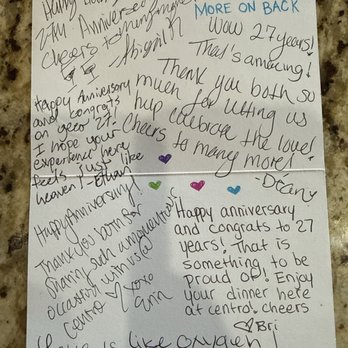 27th Anniversary
cheers to many more
Abigail R
MORE ON BACK
Wow 27 years!
That's amazing!
Thank you both so
much for letting us
help celebrate the love!
Cheers to many more!
- Dean
Happy Anniversary
and congrats
on year 27!
I hope your
experience here
feels just like
heaven! - Ethan
Happy Anniversary!
Thank you both for
sharing such a
occasion with us @
Central
xoxo
Erin
Happy anniversary
and congrats to 27
years! That is
something to be
proud of! Enjoy
your dinner here
at central! cheers
♡Bri
is like oxygen!